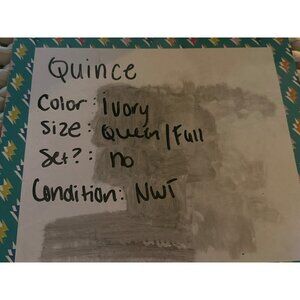 Quince
Color: Ivory
Size: Queen/Full
Set?: no
Condition: NWT